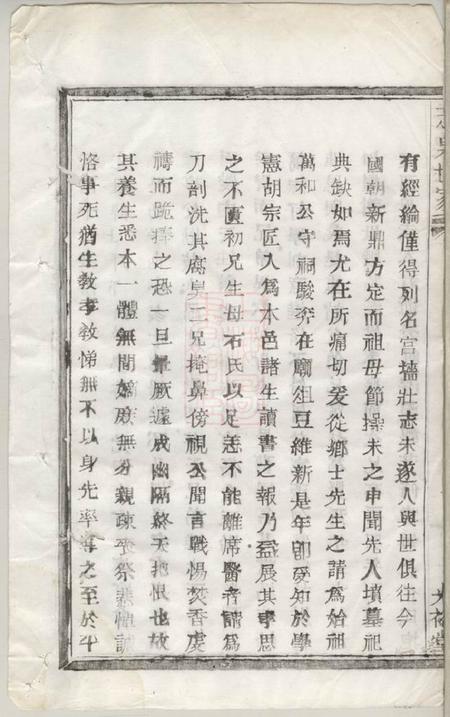 有經綸僅得列名宮牆壯志未遂人與世俱往今
國朝新鼎方定而祖母節操未之申聞先人墳墓祀
典缺如焉尤在所痛切爰從鄉士先生之請爲始祖
萬和公守祠駿奔在廟俎豆維新是年卽受知於學
憲胡宗匠入爲本邑諸生讀書之報乃益展其孝思
之不匱初兄生母石氏以足恙不能離席醫者謂爲
刀割洗其腐臭三兄掩鼻傍視公聞言戰惕焚香虔
禱而跪捧之恐一旦暈厥遽成幽隔終天抱恨也故
其養生悉本一體無間嫡庶無分親疎喪祭悲悼誠
恪事死猶生教孝教悌無不以身先率導之至於斗